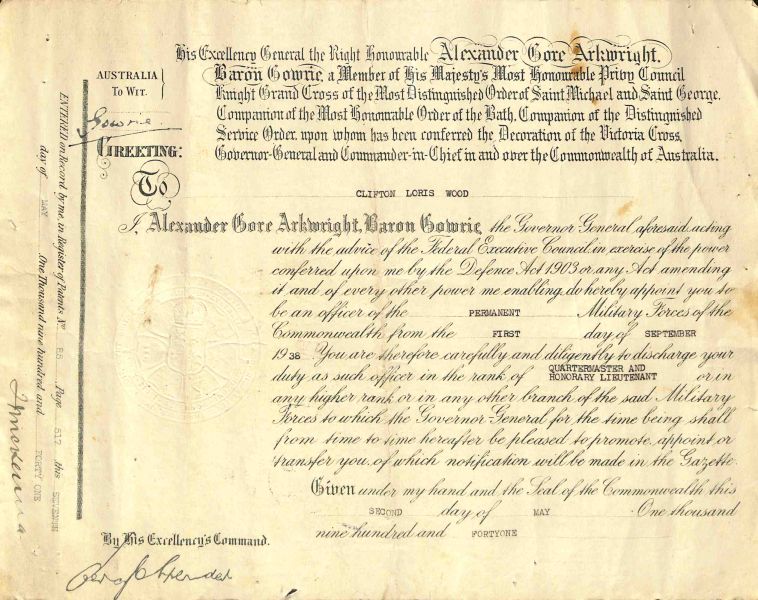 His Excellency General the Right Honourable Alexander Gore Arkwright,
Baron Gowrie, a Member of His Majesty's Most Honourable Privy Council
Knight Grand Cross of the Most Distinguished Order of Saint Michael and Saint George,
Companion of the Most Honourable Order of the Bath, Companion of the Distinguished
Service Order, upon whom has been conferred the Decoration of the Victoria Cross,
Governor-General and Commander-in-Chief in and over the Commonwealth of Australia.
AUSTRALIA
TO WIT.
Gowrie.
GREETING:
To
CLIFTON LORIS WOOD
I, Alexander Gore Arkwright, Baron Gowrie, the Governor General aforesaid, acting
with the advice of the Federal Executive Council, in exercise of the power
conferred upon me by the Defence Act 1903 or any Act amending
it and of every other power me enabling, do hereby appoint you to
be an officer of the PERMANENT Military Forces of the
Commonwealth from the FIRST day of SEPTEMBER
1938 You are therefore carefully and diligently to discharge your
duty as such officer in the rank of QUARTERMASTER AND HONORARY LIEUTENANT or in
any higher rank or in any other branch of the said Military
Forces to which the Governor General for the time being shall
from time to time hereafter be pleased to promote, appoint or
transfer you, of which notification will be made in the Gazette.
Given under my hand and the Seal of the Commonwealth this
SECOND day of MAY One thousand
nine hundred and FORTYONE
By His Excellency's Command.
ENTERED on Record by me, in Register of Patents No. Page 517 this
day of MAY One Thousand nine hundred and FORTY ONE